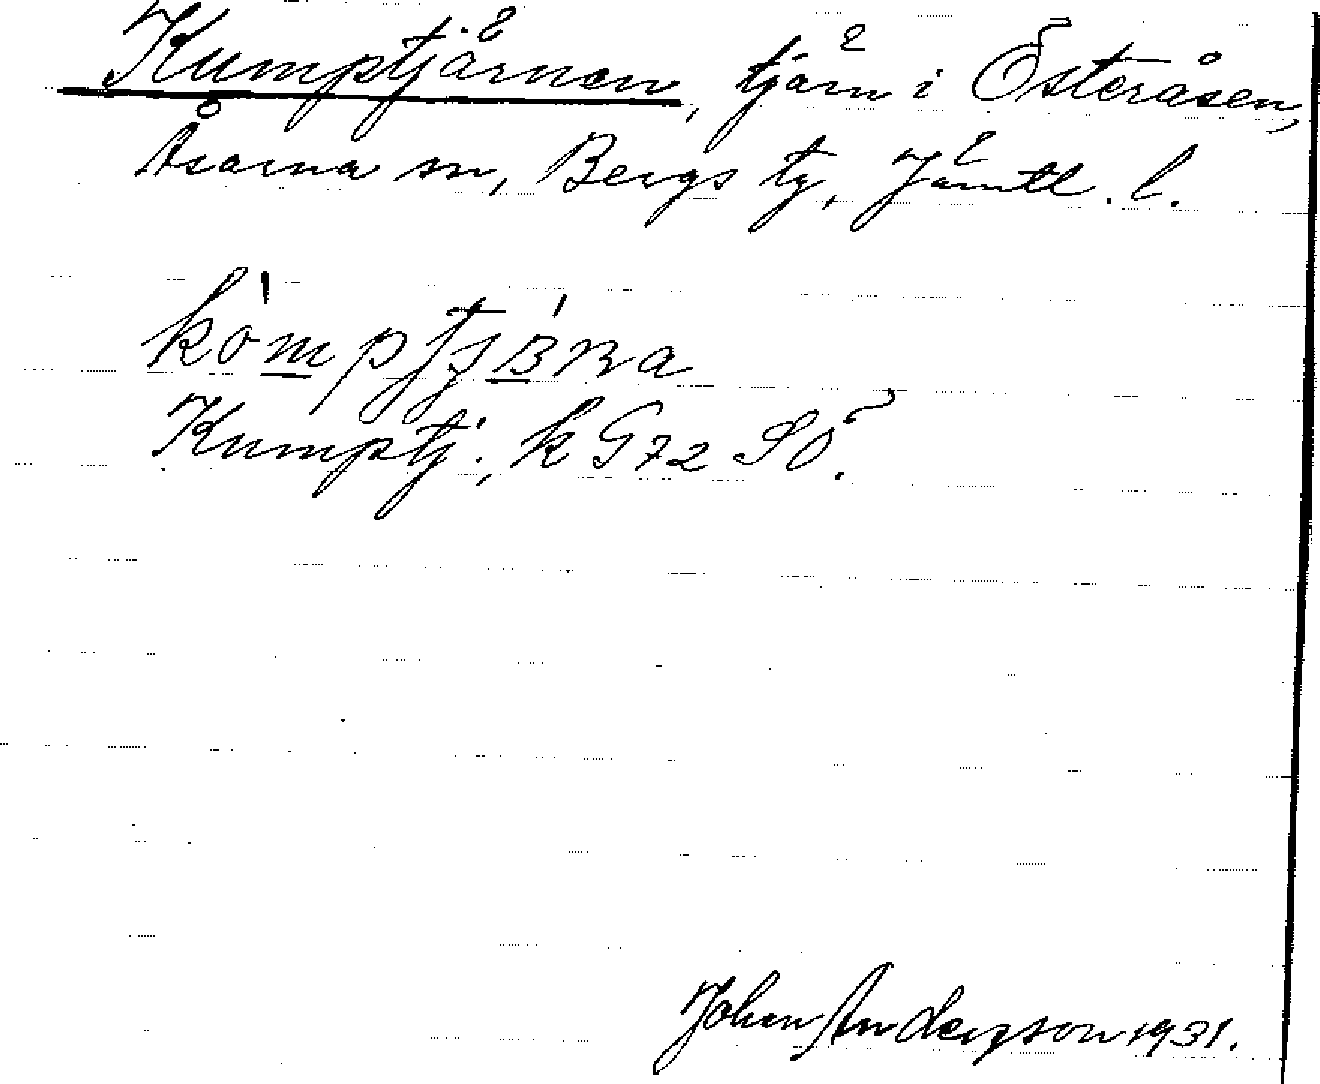 Kumptjärnen, tjärn i Österåsen,
Åsarna sn, Bergs tg, Jämtl. l.
Kumptj:, k G72 SÖ.
Johan Anderson 1931.